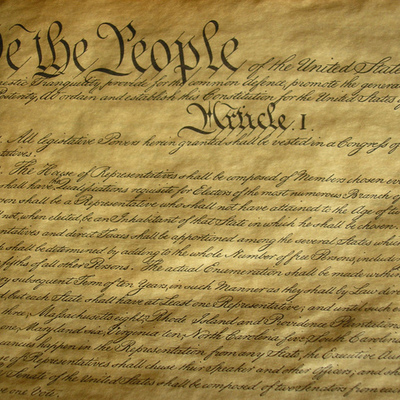 We the People of the United State
mestic Tranquility, provide for the common defence, promote the genera
Posterity, do ordain and establish this Constitution for the United States of
Article. I
All legislative Powers herein granted shall be vested in a Congress of
tatives.
The House of Representatives shall be composed of Members chosen ev
shall have Qualifications requisite for Electors of the most numerous Branch of
rson shall be a Representative who shall not have attained to the Age of twe
not, when elected, be an Inhabitant of that State in which he shall be chosen.
entatives and direct Taxes shall be apportioned among the several States which
h shall be determined by adding to the whole Number of free Persons, includi
fifths of all other Persons. The actual Enumeration shall be made within
ry subsequent Term of ten Years, in such Manner as they shall by Law dir
d, but each State shall have at Least one Representative; and until such e
three, Massachusetts eight, Rhode Island and Providence Plantations
one, Maryland six, Virginia ten, North Carolina five, South Carolina
acancies happen in the Representation from any State, the Executive Aut
se of Representatives shall chuse their Speaker and other Officers; and sha
Senate of the United States shall be composed of two Senators from each
ve one Vote.